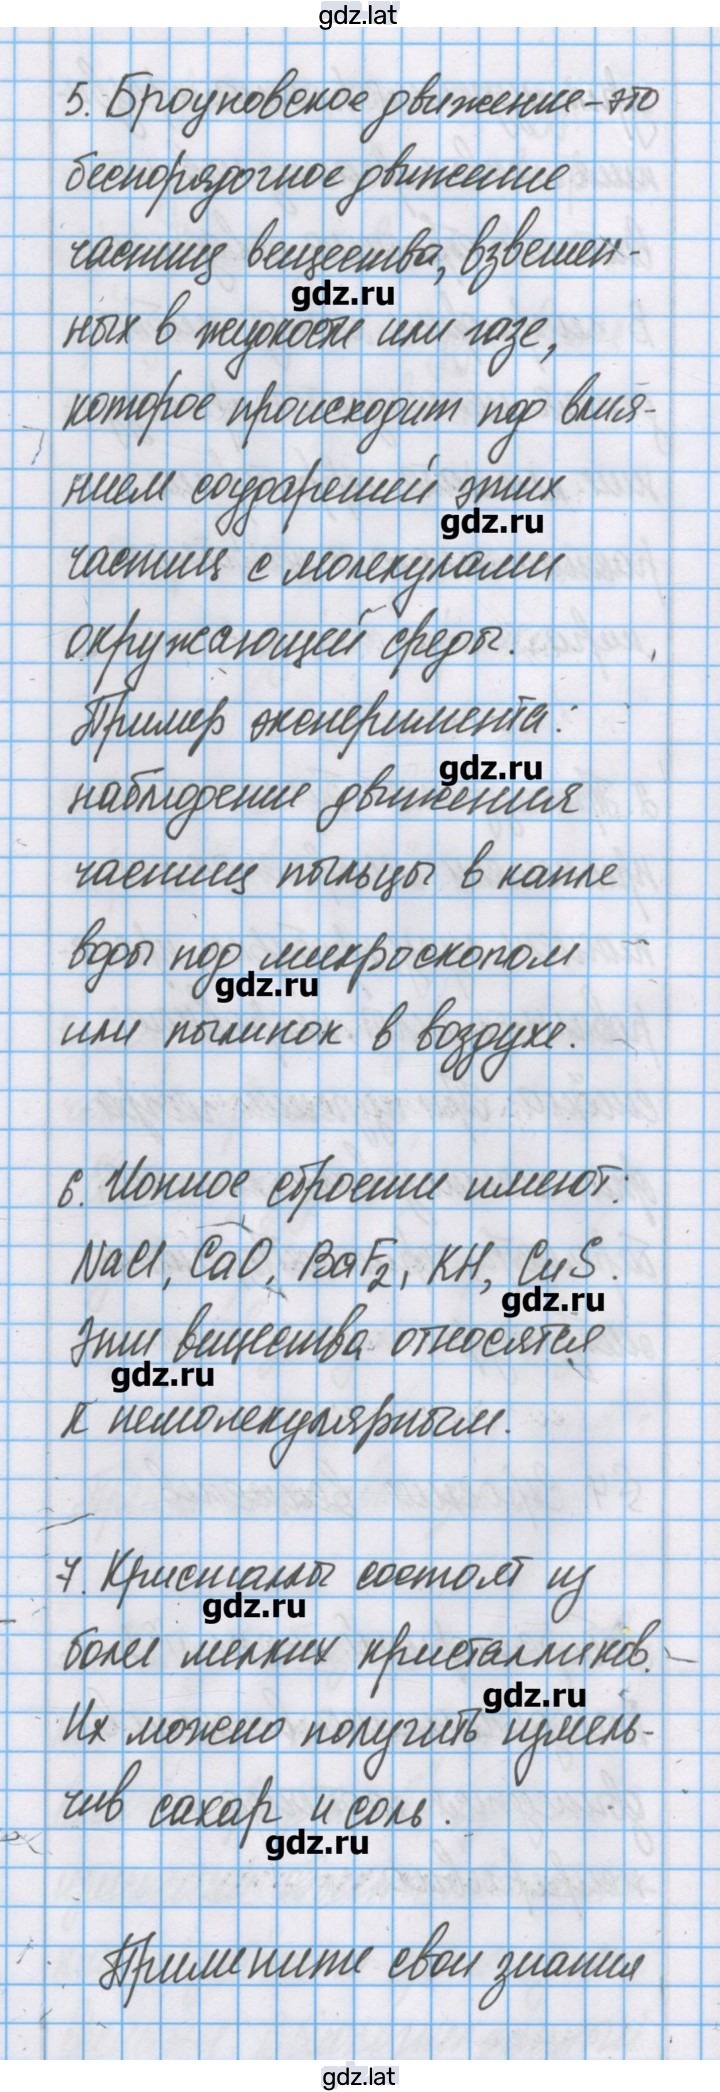 gdz.lat
5. Броуновское движение - это
беспорядочное движение
частиц вещества, взвешен-
gdz.ru
ных в жидкости или газе,
которое происходит под влия-
нием соударений этих
gdz.ru
частиц с молекулами
окружающей среды.
Пример эксперимента:
gdz.ru
наблюдение движения
частиц пыльцы в капле
воды под микроскопом
gdz.ru
или пылинок в воздухе.
6. Ионное строение имеют:
NaCl, CaO, BaF2, KH, CuS.
gdz.ru
Эти вещества относятся
gdz.ru
к немолекулярным.
7. Кристаллы состоят из
gdz.ru
более мелких кристалликов.
gdz.ru
Их можно получить измель-
чив сахар и соль.
gdz.ru
Примените свои знания
gdz.lat